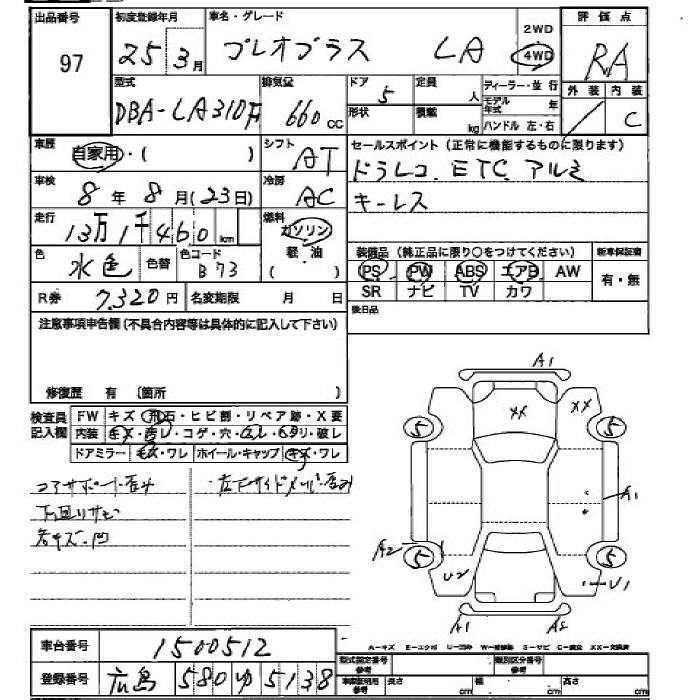 出品番号 初度登録年月 車名・グレード 2WD 評価点
97 25年 3月 プレオプラス LA 4WD RA
型式 排気量 ドア 定員 ディーラー・並行 外装 内装
DBA-LA310F 660cc 5 人 モデル年式 年 / C
形状 積載 kg ハンドル 左・右
車歴 自家用・( ) シフト AT セールスポイント(正常に機能するものに限ります)
ドラレコ ETC アルミ
車検 8年 8月(23日) 冷房 AC キーレス
走行 13万1千460km 燃料 ガソリン
軽油
( )
色 水色 色替 色コード B73
装備品(純正品に限り○をつけてください) 新車保証書
PS PW ABS エアB AW 有・無
SR ナビ TV カワ
R券 7,320円 名変期限 月 日
後日品
注意事項申告欄(不具合内容等は具体的に記入して下さい)
修復歴 有 〔箇所 〕
検査員記入欄 FW キズ・飛石・ヒビ割・リペア跡・X要
内装 キズ・汚レ・コゲ・穴・スレ・ヘタリ・破レ
ドアミラー キズ・ワレ ホイール・キャップ キズ・ワレ
コアサポート歪み ・左下サイドメンバー歪み
下回りサビ
各キズ・凹
A1
XX XX
5 5
A1
A2 5 5
U2 U1
A1 A2
A-キズ E-エクボ U-凹み W-補修跡 S-サビ C-腐食 XX-交換済
車台番号 1500512
登録番号 広島 580 ゆ 5138
型式指定番号 参考 類別区分番号 参考
車庫証明用 参考 長さ cm 幅 cm 高さ cm